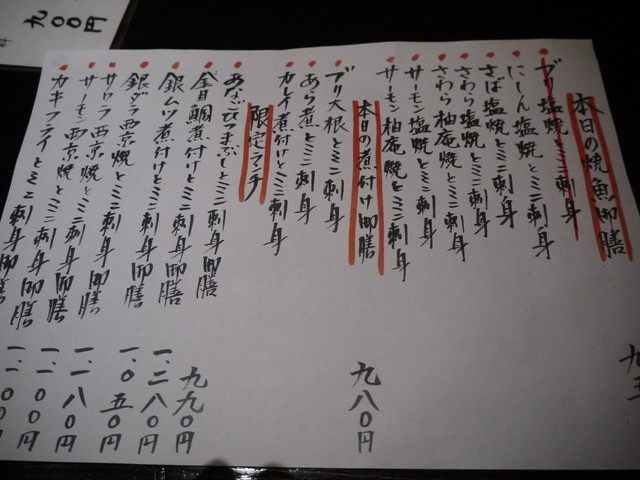 九〇〇円
本日の焼魚御膳
ブリ塩焼とミニ刺身
にしん塩焼とミニ刺身
さば塩焼とミニ刺身
さわら塩焼とミニ刺身
さわら柚庵焼とミニ刺身
サーモン塩焼とミニ刺身
サーモン柚庵焼とミニ刺身
本日の煮付け御膳 九八〇円
ブリ大根とミニ刺身
あら煮とミニ刺身
カレイ煮付けとミニ刺身
限定ランチ
あなごひつまぶしとミニ刺身 九九〇円
金目鯛煮付けとミニ刺身御膳 一.二八〇円
銀ムツ煮付けとミニ刺身御膳 一.〇五〇円
銀ダラ西京焼とミニ刺身御膳 一.一八〇円
サワラ西京焼とミニ刺身御膳 一.一〇〇円
サーモン西京焼とミニ刺身御膳
カキフライとミニ刺身御膳